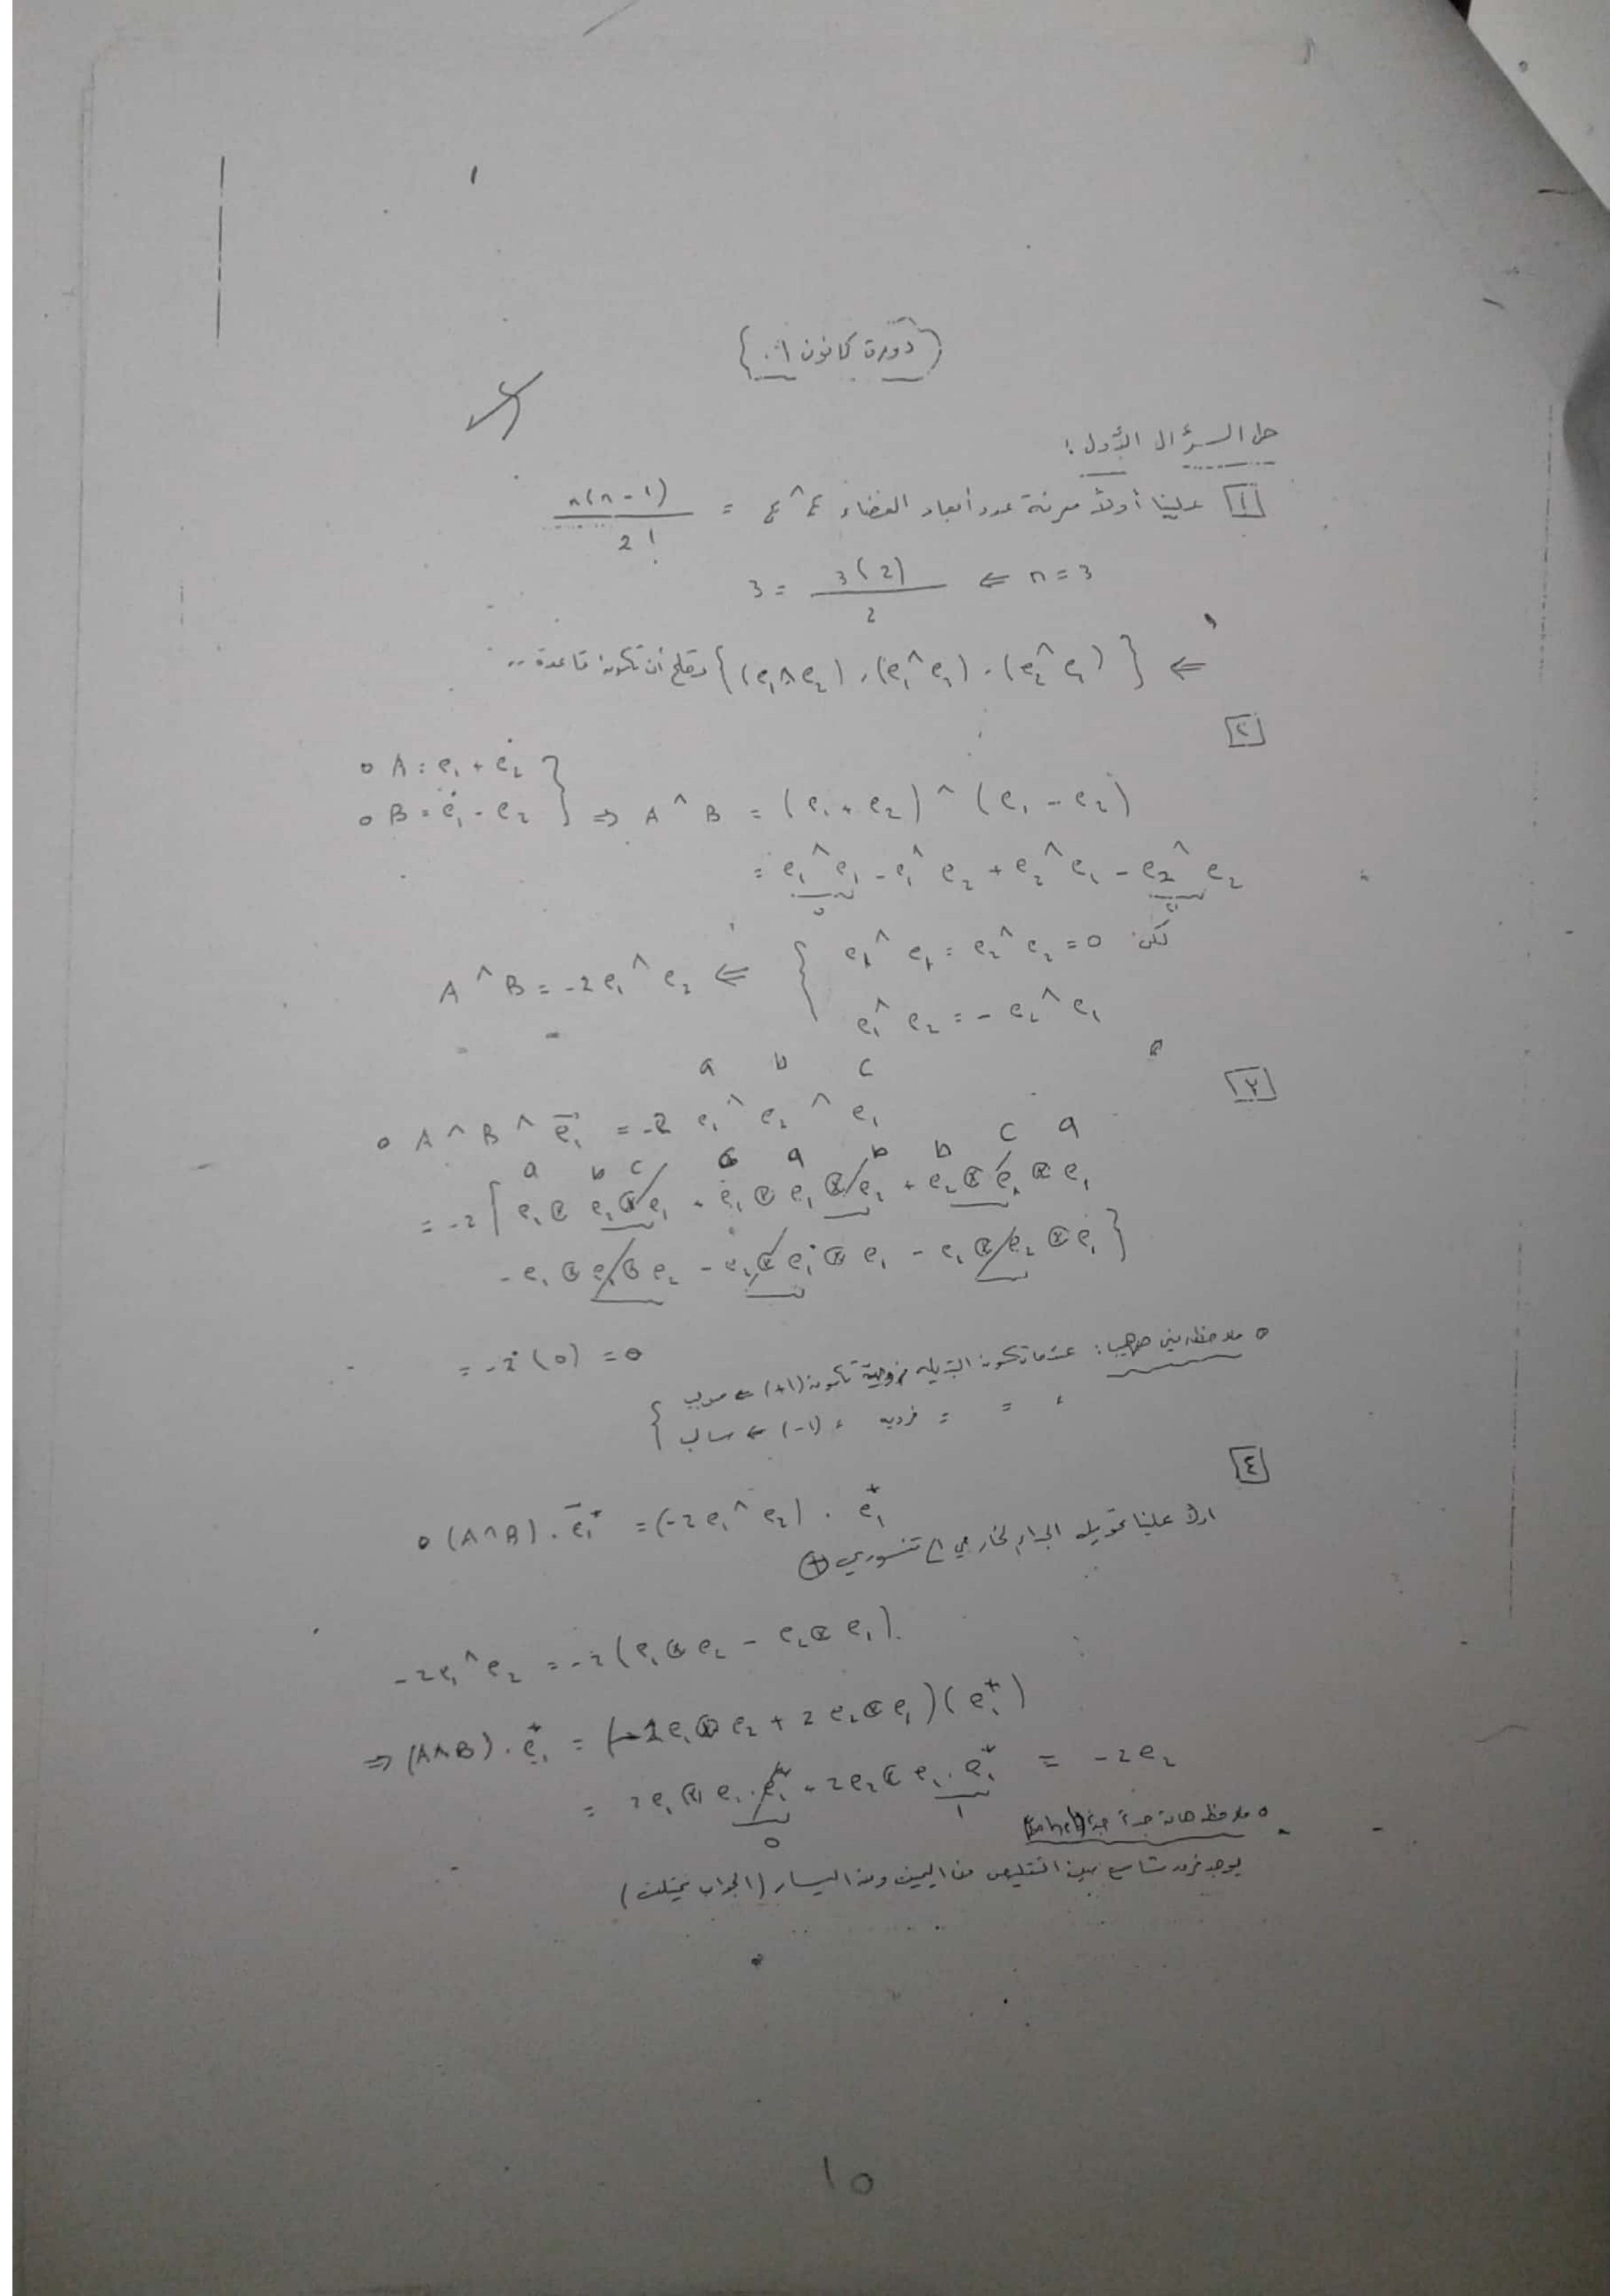 (دورة كانون ٠١)
حل السؤال الأول:
[١] علينا أولاً معرفة عدد أبعاد الفضاء ε^ε = n(n-1) / 2!
n=3 ⇐ 3(2) / 2 = 3
⇐ {(e₁∧e₂), (e₁∧e₃), (e₂∧e₃)} تصلح أن تكون قاعدة ..
[٢]
∘ A = e₁ + e₂
∘ B = e₁ - e₂ } ⇒ A ∧ B = (e₁ + e₂) ∧ (e₁ - e₂)
= e₁∧e₁ - e₁∧e₂ + e₂∧e₁ - e₂∧e₂
0 0
لكن { e₁∧e₁ = e₂∧e₂ = 0
e₁∧e₂ = - e₂∧e₁
⇐ A∧B = -2e₁∧e₂
[٣]
a b c
∘ A ∧ B ∧ e₁ = -2 e₁ ∧ e₂ ∧ e₁
a b c c a b b c a
= -2 { e₁⊗e₂⊗e₁ + e₁⊗e₁⊗e₂ + e₂⊗e₁⊗e₁
- e₁⊗e₁⊗e₂ - e₂⊗e₁⊗e₁ - e₁⊗e₂⊗e₁ }
= -2 (0) = 0
∘ ملاحظة من صهيب: عندما تكون التبديلة زوجية تكون (+1) ⇐ موجب
= = = فردية = (-1) ⇐ سالب
[٤]
∘ (A∧B) . e₁* = (-2e₁∧e₂) . e₁*
أولاً علينا تحويل الجداء الخارجي إلى تنسوري ⊗
-2e₁∧e₂ = -2(e₁⊗e₂ - e₂⊗e₁).
⇒ (A∧B) . e₁* = (-2e₁⊗e₂ + 2e₂⊗e₁)(e₁*)
= 2e₁⊗e₂.e₁* - 2e₂⊗e₁.e₁* = -2e₂
0 1
∘ ملاحظة هامة جداً جداً
يوجد فرق شاسع بين التقليص من اليمين ومن اليسار (الجواب يختلف)
10